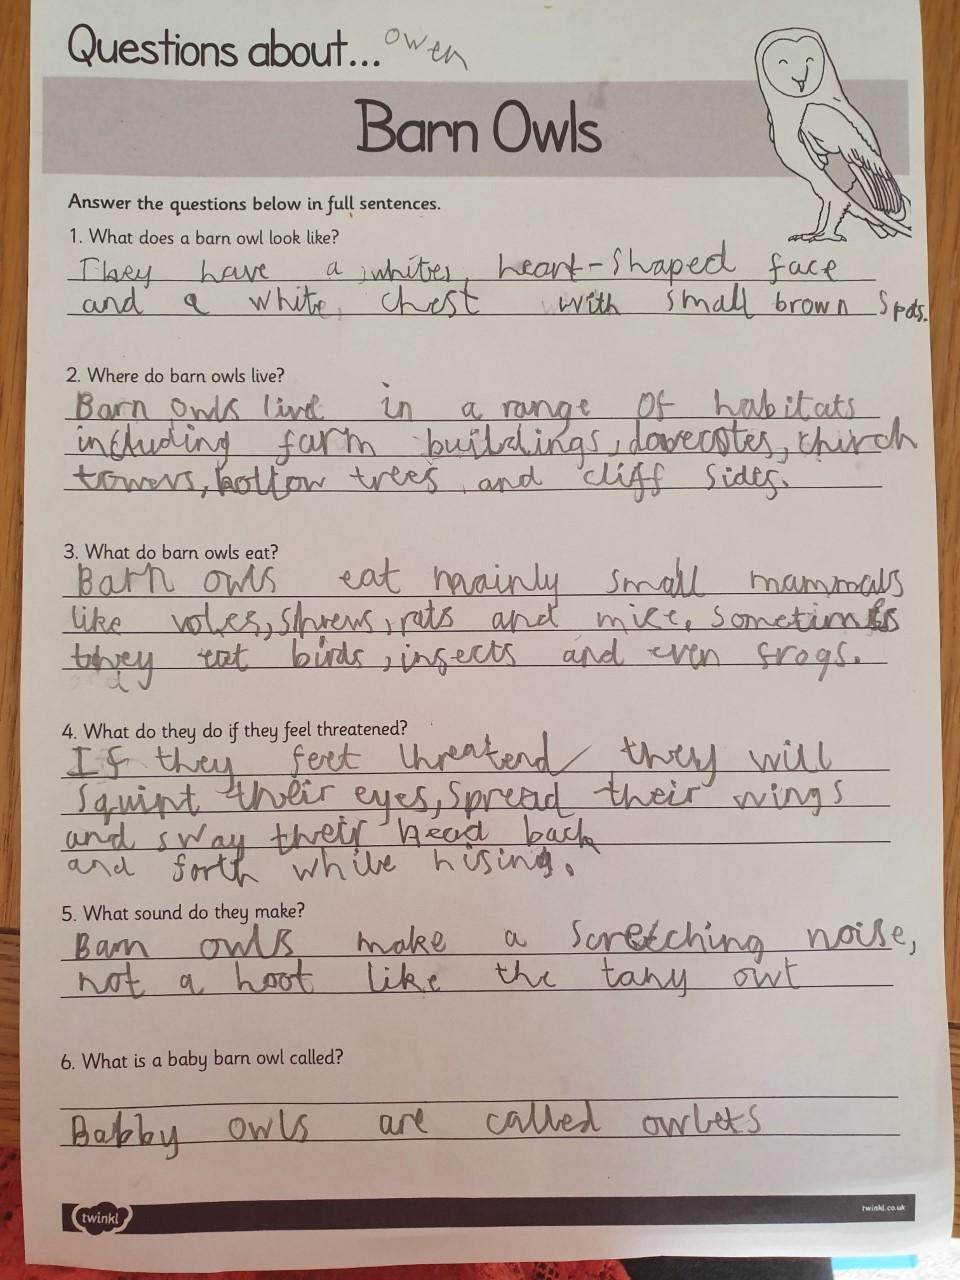 Questions about... owen
Barn Owls
Answer the questions below in full sentences.
1. What does a barn owl look like?
They have a white, heart-shaped face
and a white, chest with small brown Spots.
2. Where do barn owls live?
Barn owls live in a range of habitats
including farm buildings, dovecotes, chirch
towers, hollow trees and cliff sides.
3. What do barn owls eat?
Barn owls eat mainly small mammals
like voles, shrews, rats and mice, sometimes
they eat birds, insects and even frogs.
4. What do they do if they feel threatened?
If they feel threatend they will
squint their eyes, spread their wings
and sway their head back
and forth while hising.
5. What sound do they make?
Barn owls make a scretching noise,
not a hoot like the tany owl
6. What is a baby barn owl called?
Babby owls are called owlets
twinkl
twinkl.co.uk